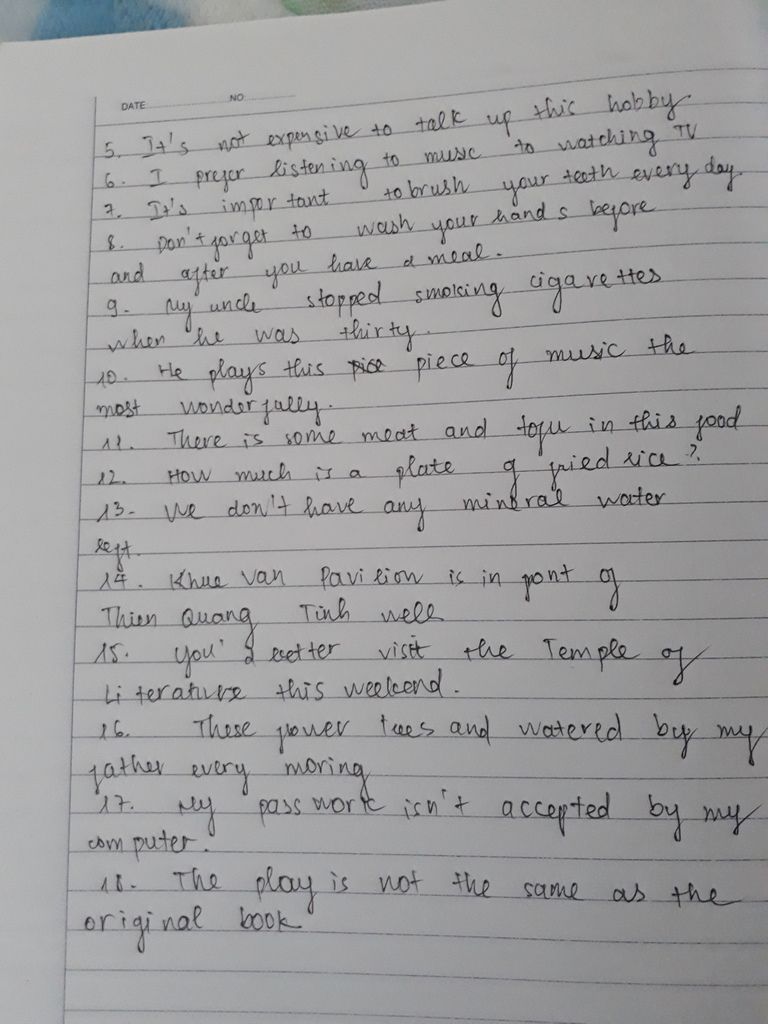 DATE NO
5. It's not expensive to talk up this hobby
6. I prefer listening to music to watching TV
7. It's important to brush your teeth every day.
8. Don't forget to wash your hands before
and after you have a meal.
9. My uncle stopped smoking cigarettes
when he was thirty.
10. He plays this piece of music the
most wonderfully.
11. There is some meat and tofu in this food
12. How much is a plate of fried rice?
13. We don't have any mineral water
left.
14. Khue Van Pavilion is in font of
Thien Quang Tinh well
15. You'd better visit the Temple of
Literature this weekend.
16. These flower trees and watered by my
father every moring
17. My passwork isn't accepted by my
computer.
18. The play is not the same as the
original book